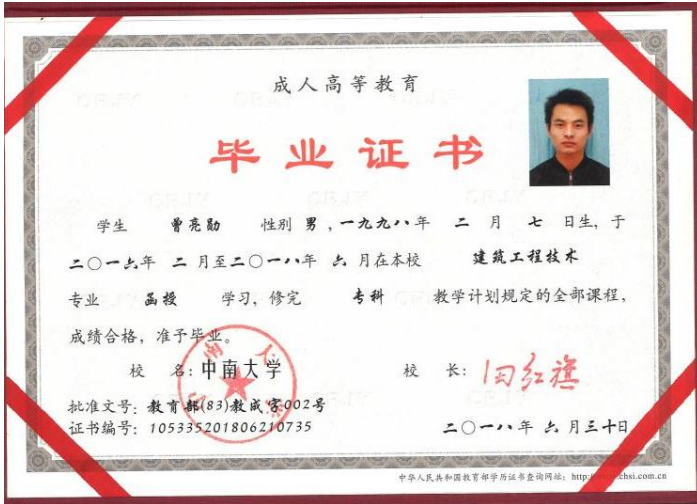 成人高等教育
毕业证书
学生 曾亮勋 性别 男，一九九八年 二 月 七 日生，于
二〇一六年 二 月至二〇一八年 六 月在本校 建筑工程技术
专业 函授 学习，修完 专科 教学计划规定的全部课程，
成绩合格，准予毕业。
校 名：中南大学 校 长：田红旗
批准文号：教育部(83)教成字002号
证书编号：105335201806210735 二〇一八年 六 月三十日
中华人民共和国教育部学历证书查询网址：http://www.chsi.com.cn